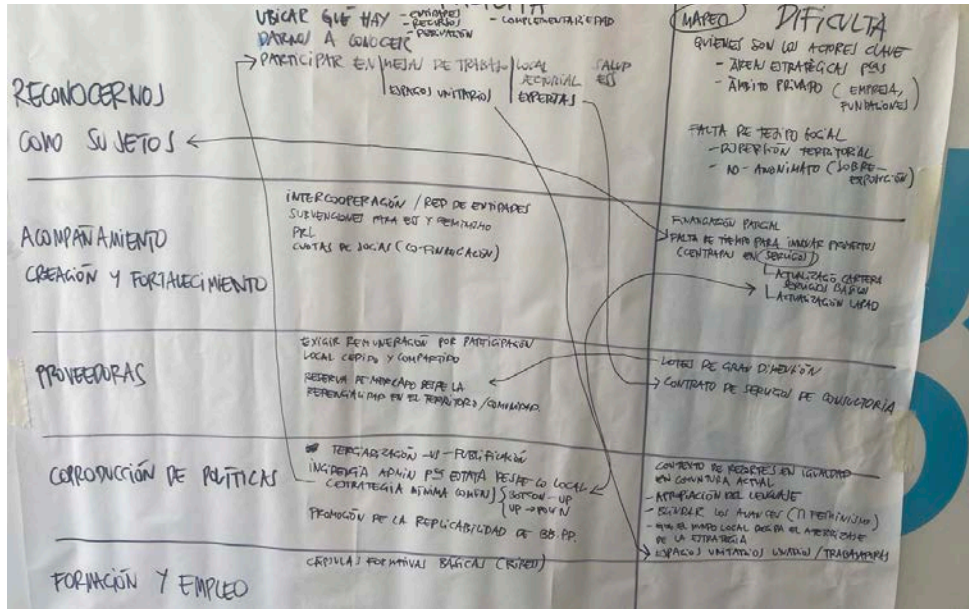 UBICAR QUÉ HAY - ENTIDADES - COMPLEMENTARIEDAD
- RECURSOS
DARNOS A CONOCER - POBLACIÓN
PARTICIPAR EN MESAS DE TRABAJO LOCAL SALUD
SECTORIAL ESS
ESPACIOS UNITARIOS EXPERTAS
RECONOCERNOS
COMO SUJETOS
MAPEO DIFICULTA
QUIENES SON LOS ACTORES CLAVE
- ÁREAS ESTRATÉGICAS
- ÁMBITO PRIVADO (EMPRESA,
FUNDACIONES)
FALTA DE TEJIDO SOCIAL
- DISPERSIÓN TERRITORIAL
- NO-ANONIMATO (SOBRE-
EXPOSICIÓN)
ACOMPAÑAMIENTO
CREACIÓN Y FORTALECIMIENTO
INTERCOOPERACIÓN / RED DE ENTIDADES
SUBVENCIONES PARA ESS Y FEMINISMO
PRL
CUOTAS DE SOCIAS (CO-FINANCIACIÓN)
FINANCIACIÓN PARCIAL
FALTA DE TIEMPO PARA INNOVAR PROYECTOS
(CENTRADAS EN SERVICIOS)
ACTUALIZACIÓ CARTERA
SERVICIOS BÁSICOS
ACTUALIZACIÓN LAPAD
PROVEEDORAS
EXIGIR REMUNERACIÓN POR PARTICIPACIÓN
LOCAL CEDIDO Y COMPARTIDO
RESERVA DE MERCADO DESDE LA
EN EL TERRITORIO/COMUNIDAD.
LOTES DE GRAN DIMENSIÓN
CONTRATO DE SERVICIOS DE CONSULTORÍA
COPRODUCCIÓN DE POLÍTICAS
TERCIARIZACIÓN -VS- PUBLIFICACIÓN
INCIDENCIA ADMIN ESTATAL DESDE LO LOCAL
(ESTRATEGIA MÍNIMA COMÚN) BOTTOM-UP
UP-DOWN
PROMOCIÓN DE LA REPLICABILIDAD DE BB.PP.
CONTEXTO DE RECORTES EN IGUALDAD
EN COYUNTURA ACTUAL
- APROPIACIÓN DEL LENGUAJE
- BLINDAR LOS AVANCES (FEMINISMO)
- QUE EL MAPEO LOCAL EL ATERRIZAJE
DE LA ESTRATEGIA
ESPACIOS UNITARIOS / TRABAJADORAS
FORMACIÓN Y EMPLEO
CÁPSULAS FORMATIVAS BÁSICAS